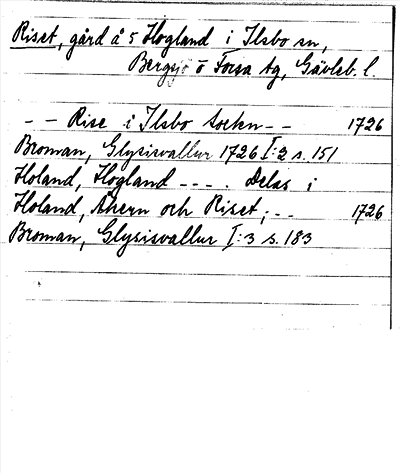 Riset, gård å 5 Högland i Ilsbo sn,
Bergsjö o Forsa tg, Gävleb. l.
- - Rise i Ilsbo Sockn - - 1726
Broman, Glysisvallur 1726 I:2 s. 151
Holand, Högland - - - . Delas i
Holand, Åkern och Riset; - - 1726
Broman, Glysisvallur I:3 s. 183